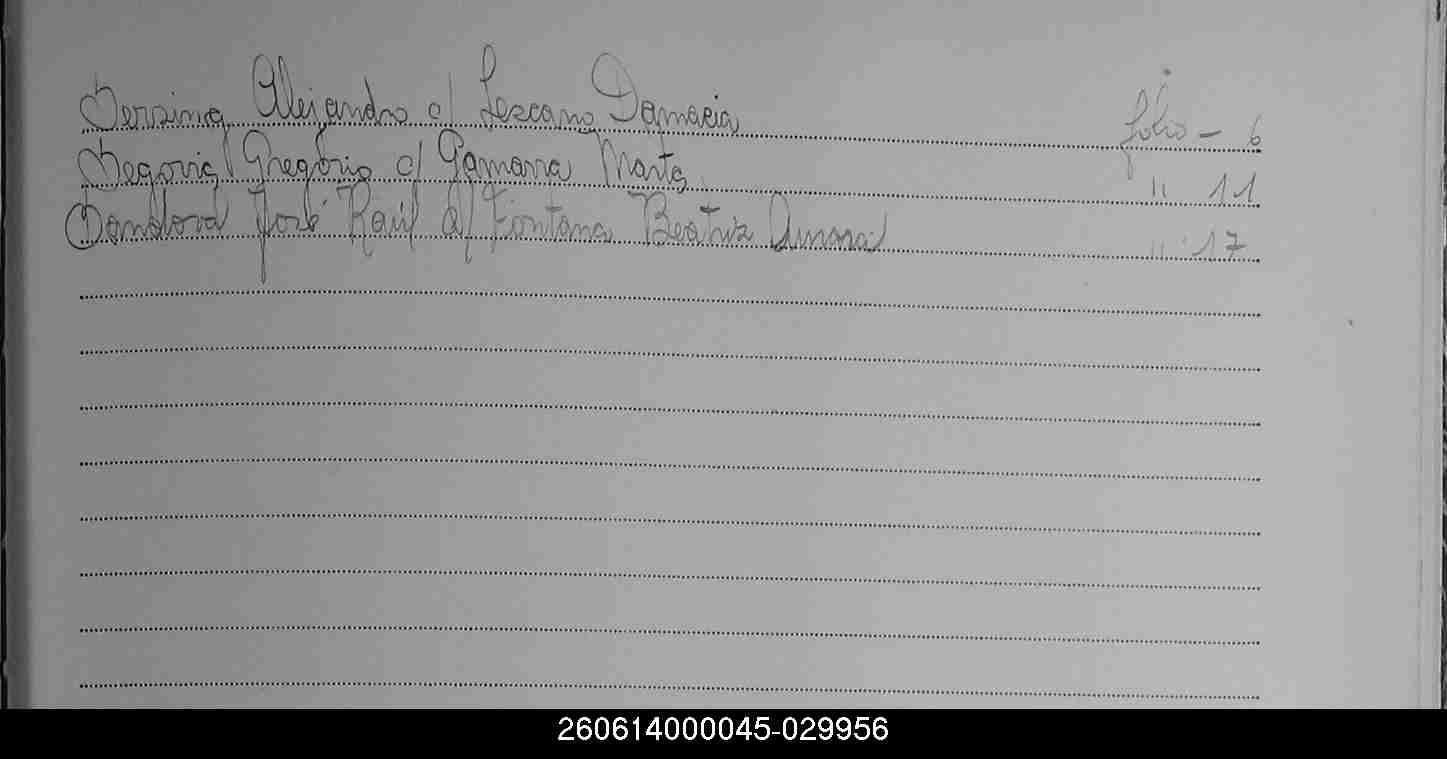 Sersing Alejandro c/ Lezcano Damacia folio - 6
Segovia Gregorio c/ Gamarra Marta " 11
Sandoval José Raúl c/ Fontana Beatriz " 17
260614000045-029956